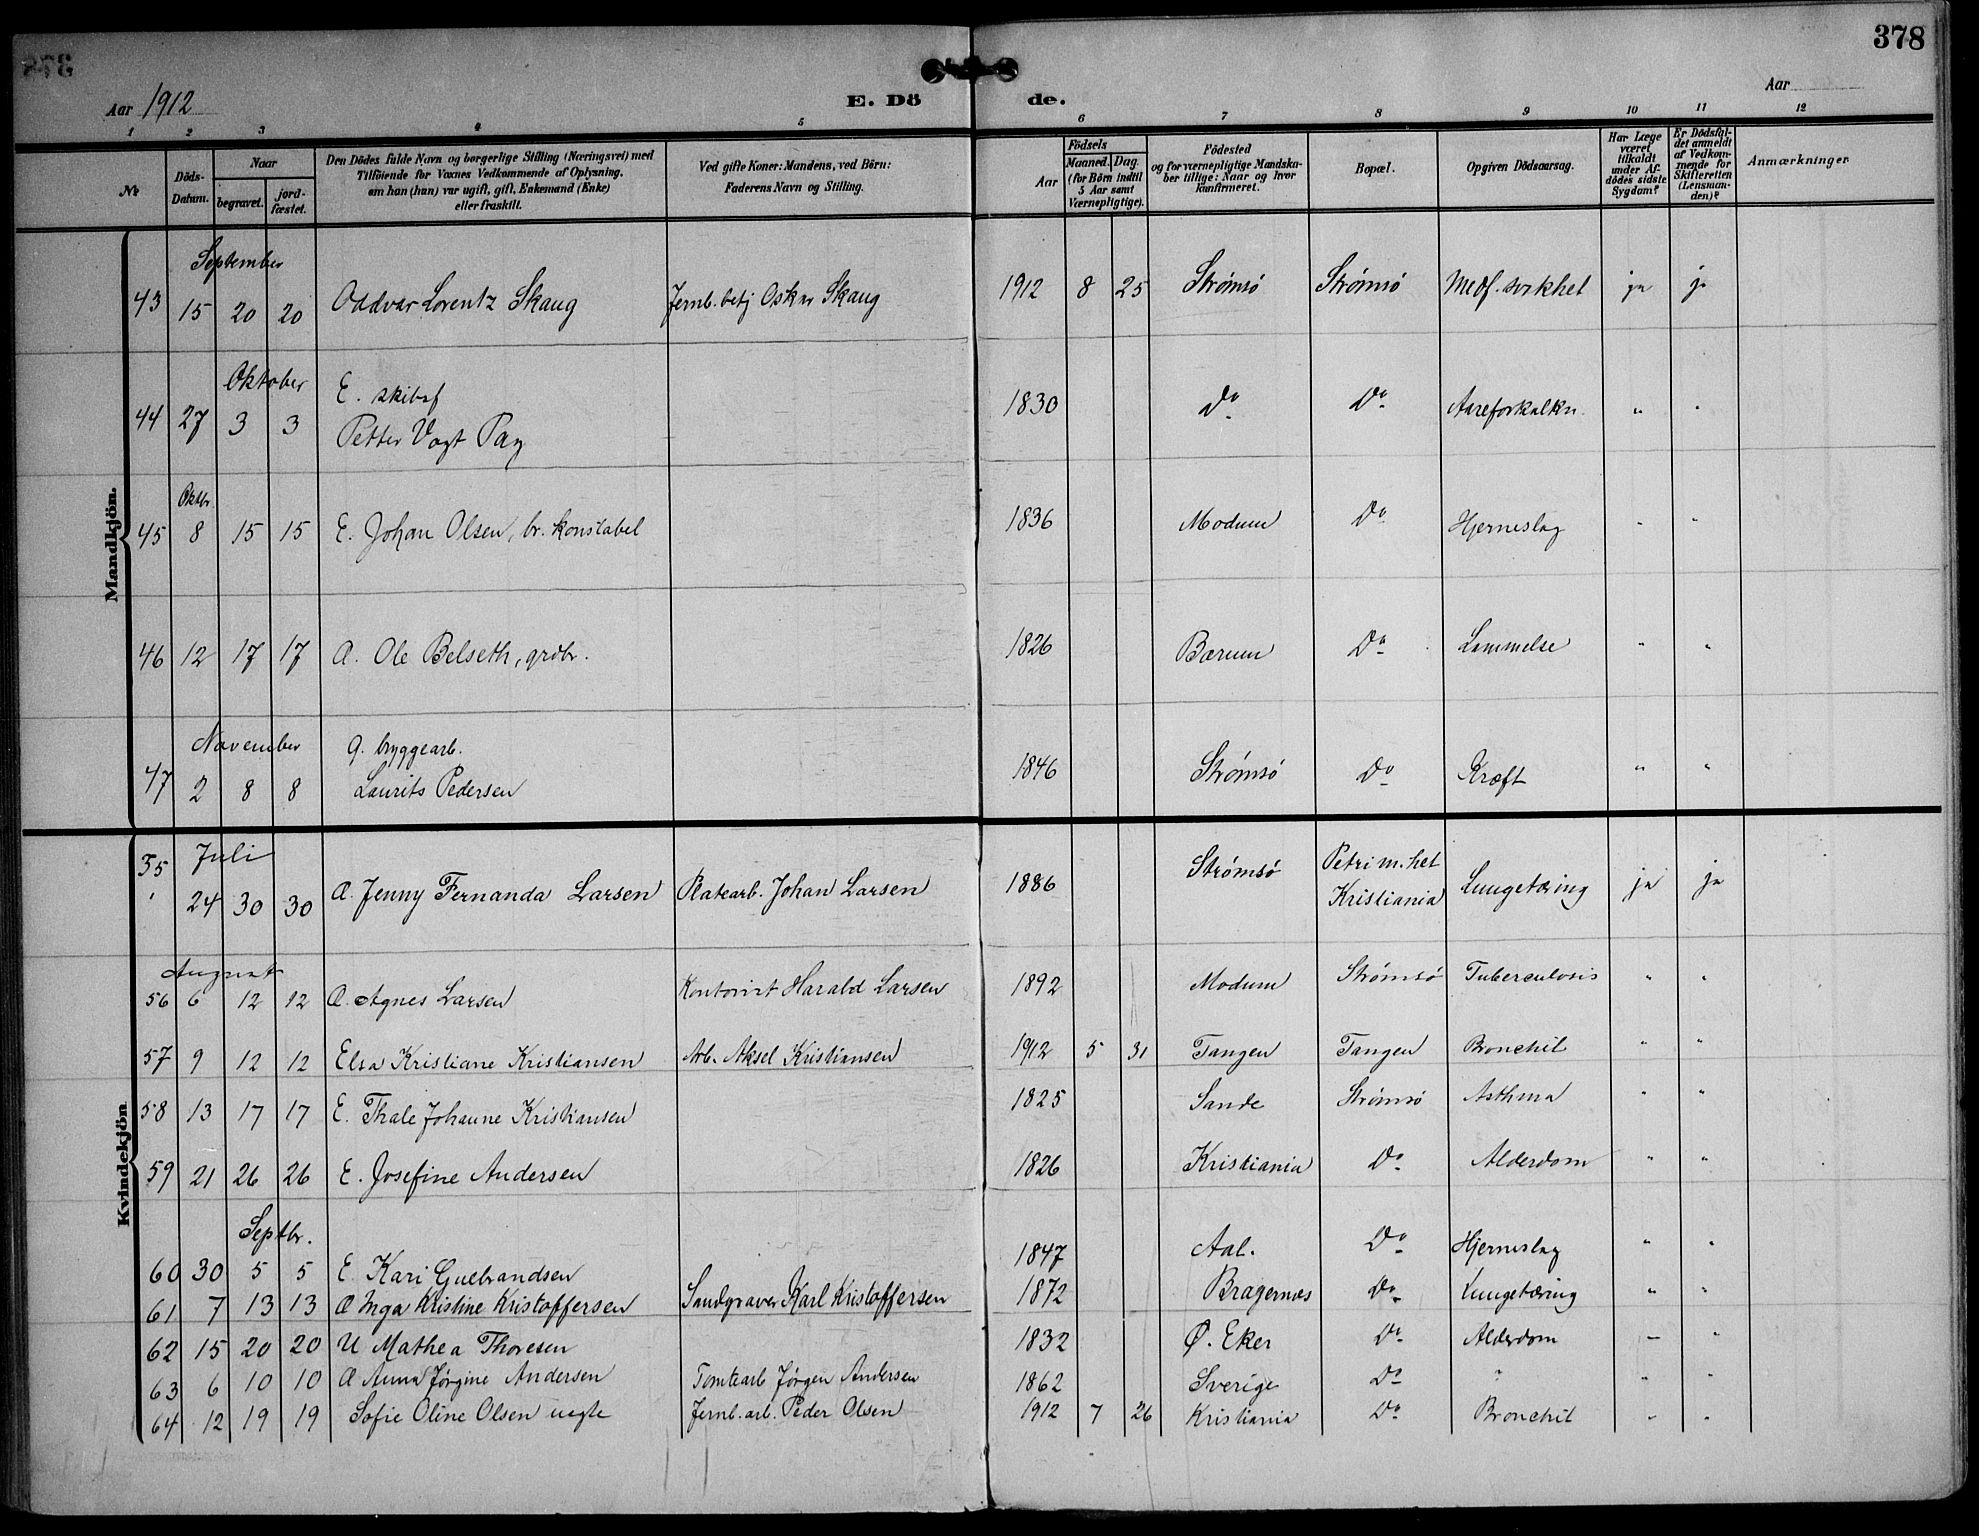 378
Aar 1912
E. Dö de.
Aar
1 2 3 4 5 6 7 8 9 10 11 12
No
Döds-Datum.
Naar
begravet. jord-fæstet.
Den Dödes fulde Navn og borgerlige Stilling (Næringsvei) med
Tilföiende for Voxnes Vedkommende af Oplysning.
om han (hun) var ugift, gift, Enkemand (Enke)
eller fraskilt.
Ved gifte Koner: Mandens, ved Börn:
Faderens Navn og Stilling.
Födsels
Aar
Maaned. Dag.
(for Börn indtil
5 Aar samt
Værnepligtige).
Födested
og for værnepligtige Mandska-
ber tillige: Naar og hvor
konfirmeret.
Bopæl.
Opgiven Dödsaarsag.
Har Læge
været
tilkaldt
under Af-
dödes sidste
Sygdom?
Er Dödsfal-
det anmeldt
af Vedkom-
mende for
Skifteretten
(Lensman-
den)?
Anmærkninger
Mandkjön.
September
43 15 20 20 Oddvar Lorentz Skaug Jernb.betj Oskar Skaug 1912 8 25 Strømsø Strømsø Medf. svakhet ja ja
Oktober
E. skibsf
44 27 3 3 Petter Vogt Pay 1830 Do Do Aareforkalkn. " "
Oktbr.
45 8 15 15 E. Johan Olsen, br. konstabel 1836 Modum Do Hjerneslag " "
46 12 17 17 A. Ole Belseth, grdbr. 1826 Bærum Do Lammelse " "
November
g. bryggearb.
47 2 8 8 Laurits Pedersen 1846 Strømsø Do Kræft " "
Kvindekjön
Juli
55 24 30 30 A. Jenny Fernanda Larsen Platearb. Johan Larsen 1886 Strømsø Petri m.het Kristiania Lungetæring ja ja
August
56 6 12 12 A. Agnes Larsen Kontorist Harald Larsen 1892 Modum Strømsø Tuberculosis " "
57 9 12 12 Elsa Kristiane Kristiansen Arb. Aksel Kristiansen 1912 5 31 Tangen Tangen Bronchit " "
58 13 17 17 E. Thale Johanne Kristiansen 1825 Sande Strømsø Asthma " "
59 21 26 26 E. Josefine Andersen 1826 Kristiania Do Alderdom " "
Septbr.
60 30 5 5 E. Kari Gulbrandsen 1847 Aal. Do Hjerneslag " "
61 7 13 13 A Inga Kristine Kristoffersen Sandgraver Karl Kristoffersen 1872 Bragernæs Do Lungetæring " "
62 15 20 20 U Mathea Thoresen 1832 Ø. Eker Do Alderdom — "
63 6 10 10 A Anna Jørgine Andersen Tomtearb Jørgen Andersen 1862 Sverige Do " " "
64 12 19 19 Sofie Oline Olsen uegte Jernb.arb. Peder Olsen 1912 7 26 Kristiania Do Bronchit " "